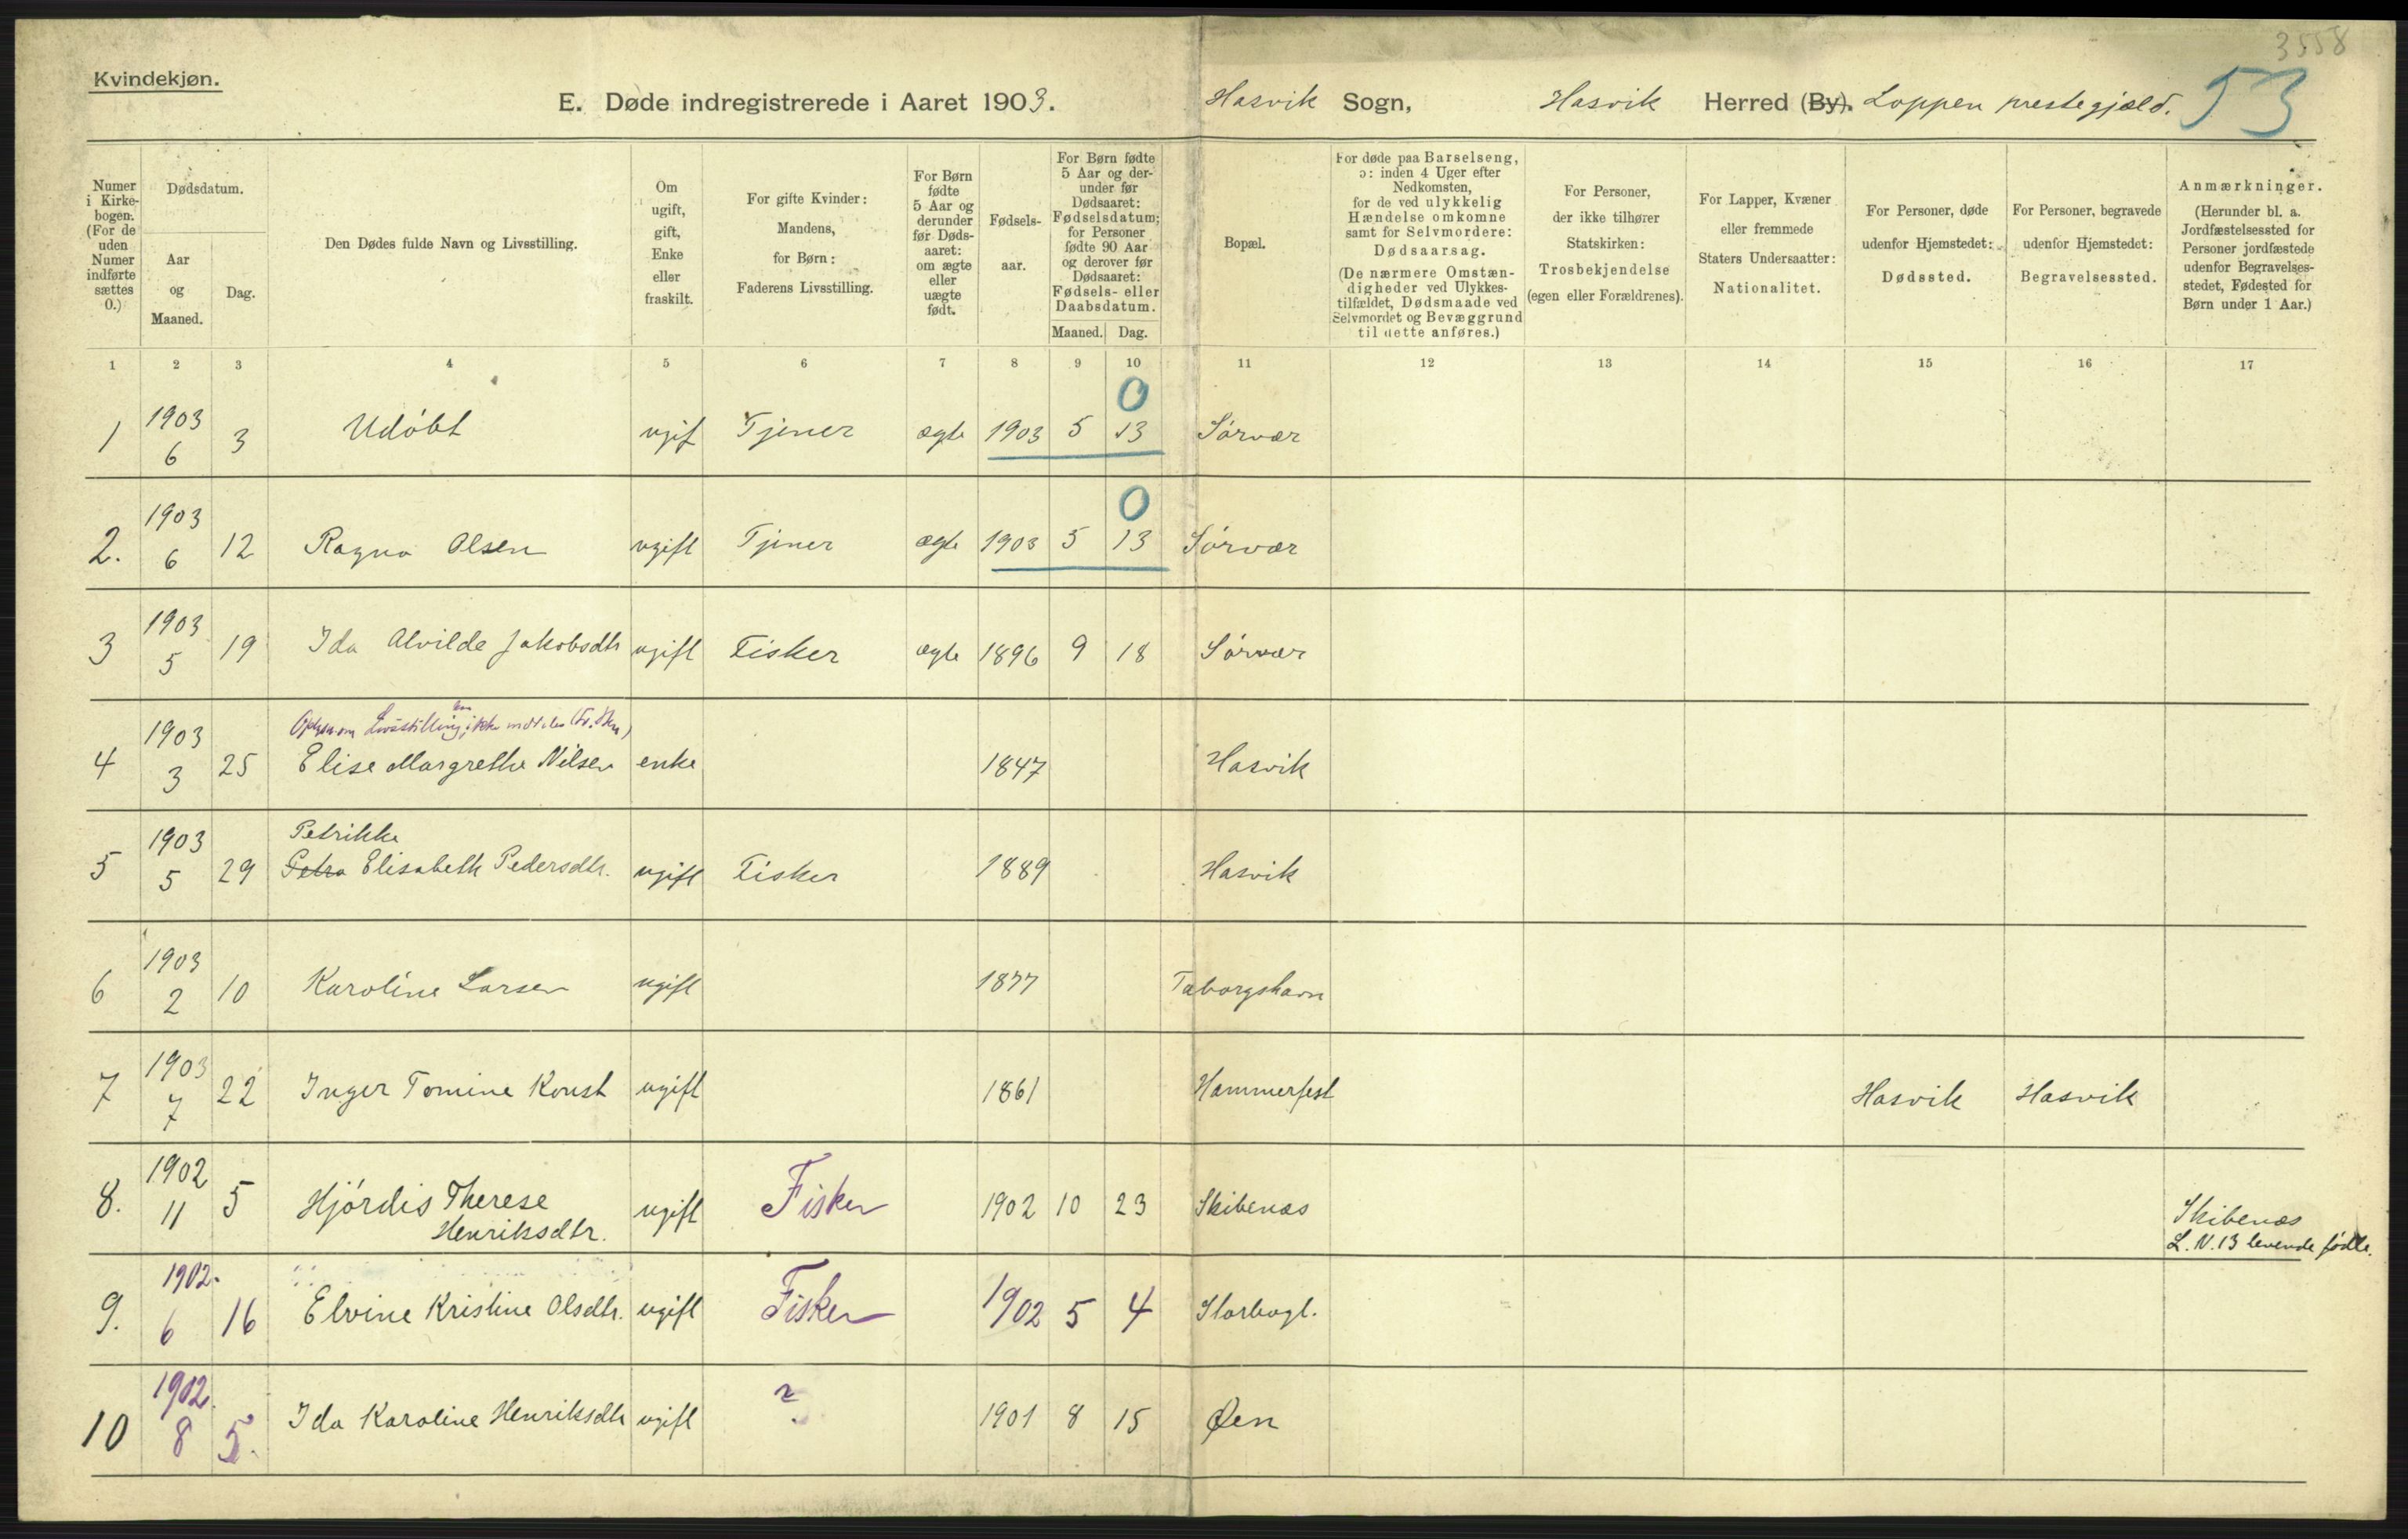 3558
Kvindekjøn.
E. Døde indregistrerede i Aaret 1903.
Hasvik Sogn, Hasvik Herred (By). Loppen prestegjæld. 53
Numer
i Kirke-
bogen.
(For de
uden
Numer
indførte
sættes
0.)
Dødsdatum.
Aar
og
Maaned.
Dag.
Den Dødes fulde Navn og Livsstilling.
Om
ugift,
gift,
Enke
eller
fraskilt.
For gifte Kvinder:
Mandens,
for Børn:
Faderens Livsstilling.
For Børn
fødte
5 Aar og
derunder
før Døds-
aaret:
om ægte
eller
uægte
født.
Fødsels-
aar.
For Børn fødte
5 Aar og der-
under før
Dødsaaret:
Fødselsdatum;
for Personer
fødte 90 Aar
og derover før
Dødsaaret:
Fødsels- eller
Daabsdatum.
Maaned. Dag.
Bopæl.
For døde paa Barselseng,
ɔ: inden 4 Uger efter
Nedkomsten,
for de ved ulykkelig
Hændelse omkomne
samt for Selvmordere:
Dødsaarsag.
(De nærmere Omstæn-
digheder ved Ulykkes-
tilfældet, Dødsmaade ved
Selvmordet og Bevæggrund
til dette anføres.)
For Personer,
der ikke tilhører
Statskirken:
Trosbekjendelse
(egen eller Forældrenes).
For Lapper, Kvæner
eller fremmede
Staters Undersaatter:
Nationalitet.
For Personer, døde
udenfor Hjemstedet:
Dødssted.
For Personer, begravede
udenfor Hjemstedet:
Begravelsessted.
Anmærkninger.
(Herunder bl. a.
Jordfæstelsessted for
Personer jordfæstede
udenfor Begravelses-
stedet, Fødested for
Børn under 1 Aar.)
1 2 3 4 5 6 7 8 9 10 11 12 13 14 15 16 17
0
1 1903 6 3 Udøbt ugif Tjener ægte 1903 5 13 Sørvær
0
2. 1903 6 12 Ragna Olsen ugift Tjener ægte 1903 5 13 Sørvær
3 1903 5 19 Ida Alvilde Jakobsdtr ugift Fisker ægte 1896 9 18 Sørvær
Livsstilling ikke
4 1903 3 25 Elise Margrethe Nilsen enke 1847 Hasvik
Petrikke
5 1903 5 29 Petra Elisabeth Pedersdtr. ugift Fisker 1889 Hasvik
6 1903 2 10 Karoline Larsen ugift 1877 Taborgshavn
7 1903 7 22 Inger Tomine Konst ugift 1861 Hammerfest Hasvik Hasvik
8. 1902 11 5 Hjørdis Therese
Henriksdtr. ugift Fisker 1902 10 23 Skibenæs Skibenæs
L. N. 13 levende fødte.
9. 1902. 6 16 Elvine Kristine Olsdtr. ugift Fisker 1902 5 4
10 1902. 8 5. Ida Karoline Henriksdtr ugift ? 1901 8 15 Øen